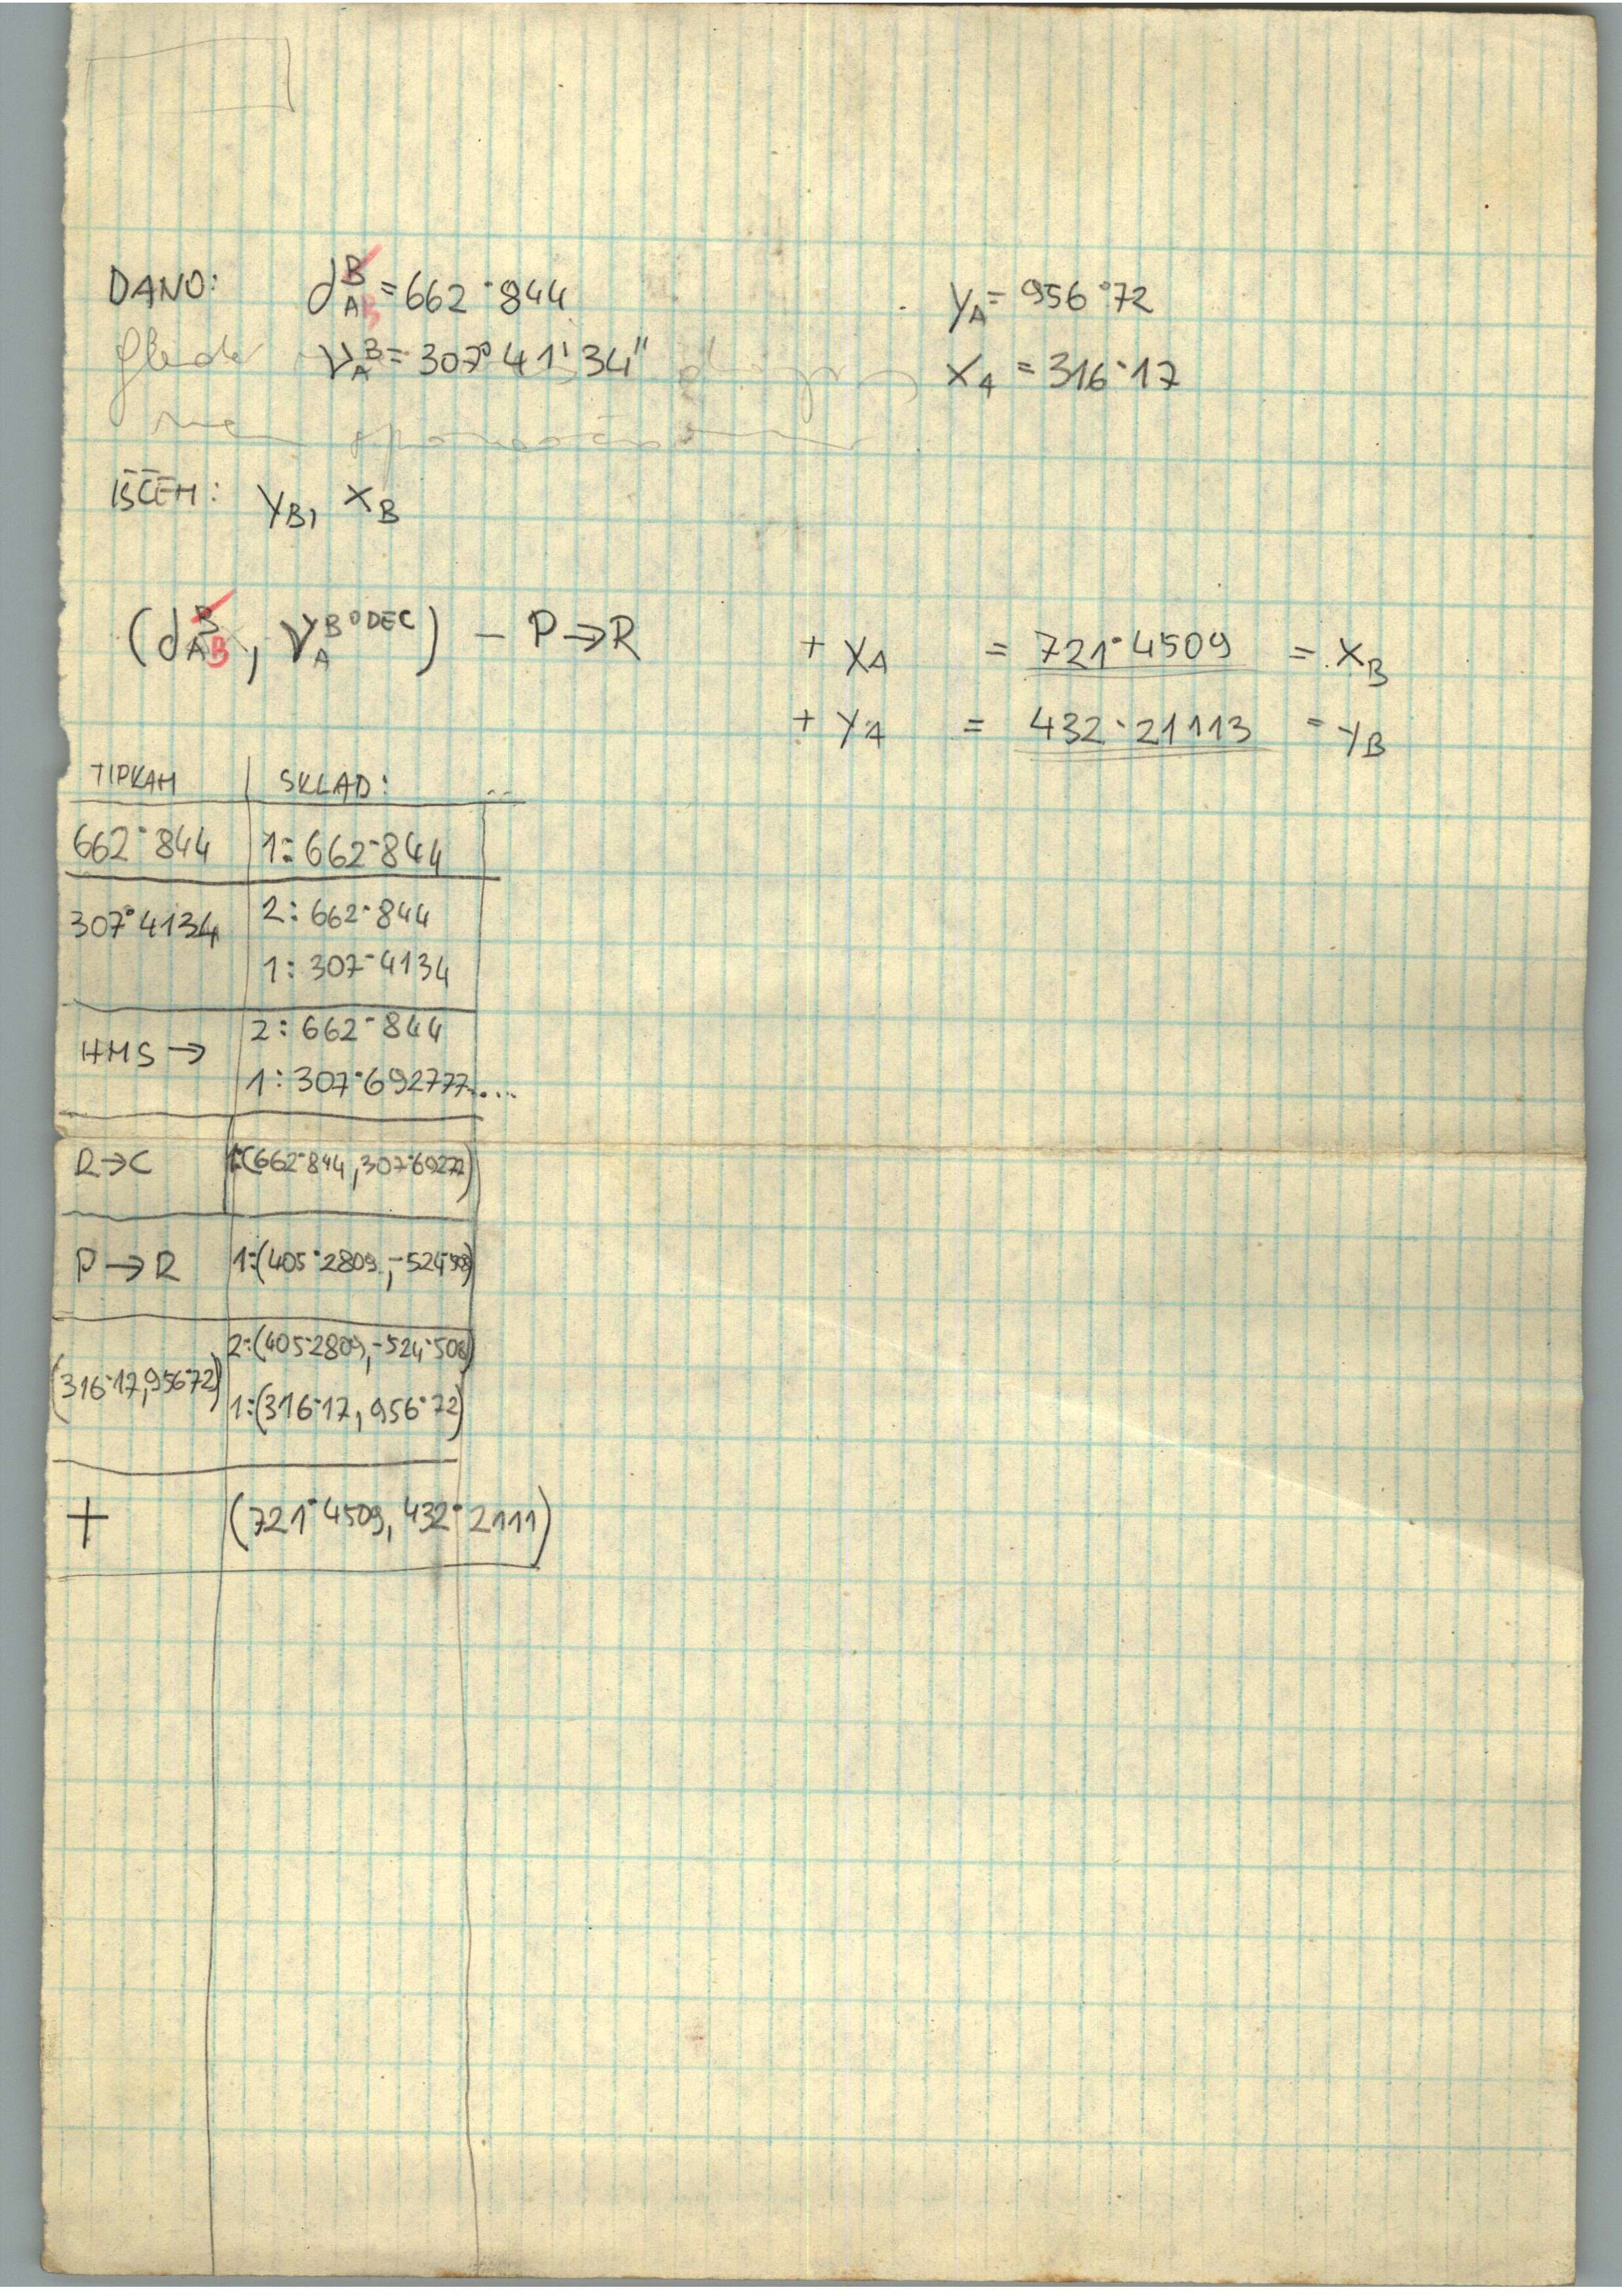 DANO: d_AB = 662·844 y_A = 956·72
ν_A^B = 307°41'34" x_A = 316·17
IŠČEM: y_B, x_B
(d_AB, ν_A^B °DEC) – P→R + x_A = 721·4509 = x_B
+ y_A = 432·21113 = y_B
TIPKAM SKLAD:
662·844 1: 662·844
307·4134 2: 662·844
1: 307·4134
HMS→ 2: 662·844
1: 307·692777....
R→C 1:(662·844, 307·69277)
P→R 1:(405·2809, -524·508)
(316·17, 956·72) 2:(405·2809, -524·508)
1:(316·17, 956·72)
+ (721·4509, 432·2111)